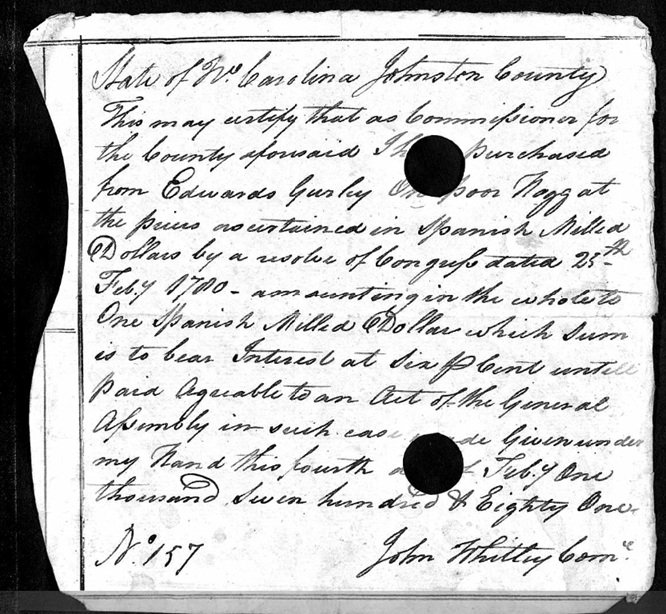 State of No. Carolina Johnston County
This may certify that as Commissioner for
the County aforesaid I purchased
from Edwards Gurley One poor Hogg at
the prices ascertained in Spanish Milled
Dollars by a resolve of Congress dated 25th
Feb.y 1780 - amounting in the whole to
One Spanish Milled Dollar which Sum
is to bear Interest at Six P Cent untill
paid Agreable to an Act of the General
Assembly in such case Given under
my Hand this fourth Feb.y One
thousand Seven hundred & Eighty One
No. 157 John Whitley Com.